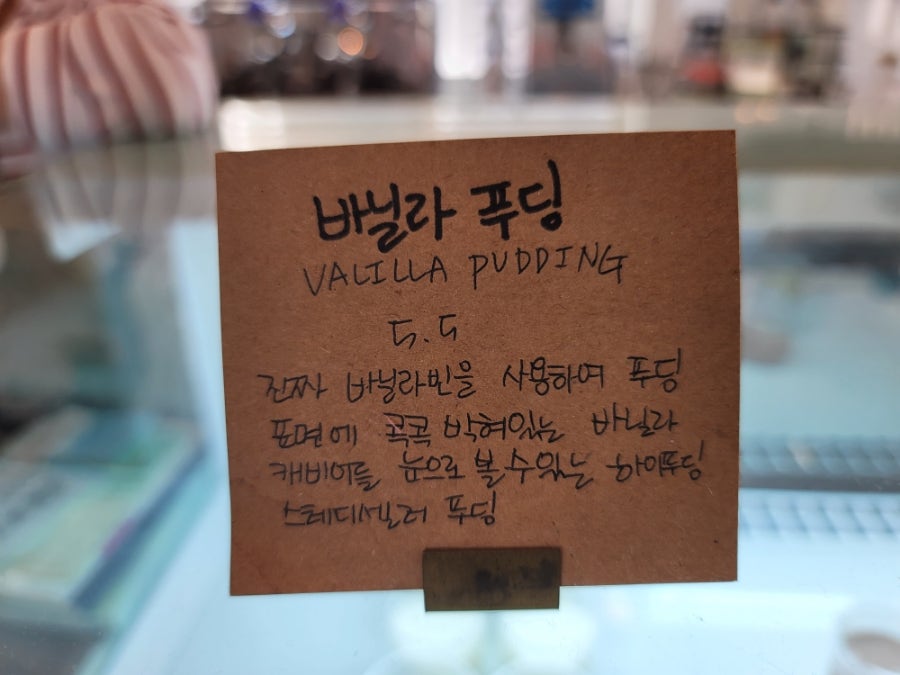 바닐라 푸딩
VALILLA PUDDING
5.5
진짜 바닐라빈을 사용하여 푸딩
표면에 콕콕 박혀있는 바닐라
캐비어들 눈으로 볼 수 있는 하이푸딩
스테디셀러 푸딩